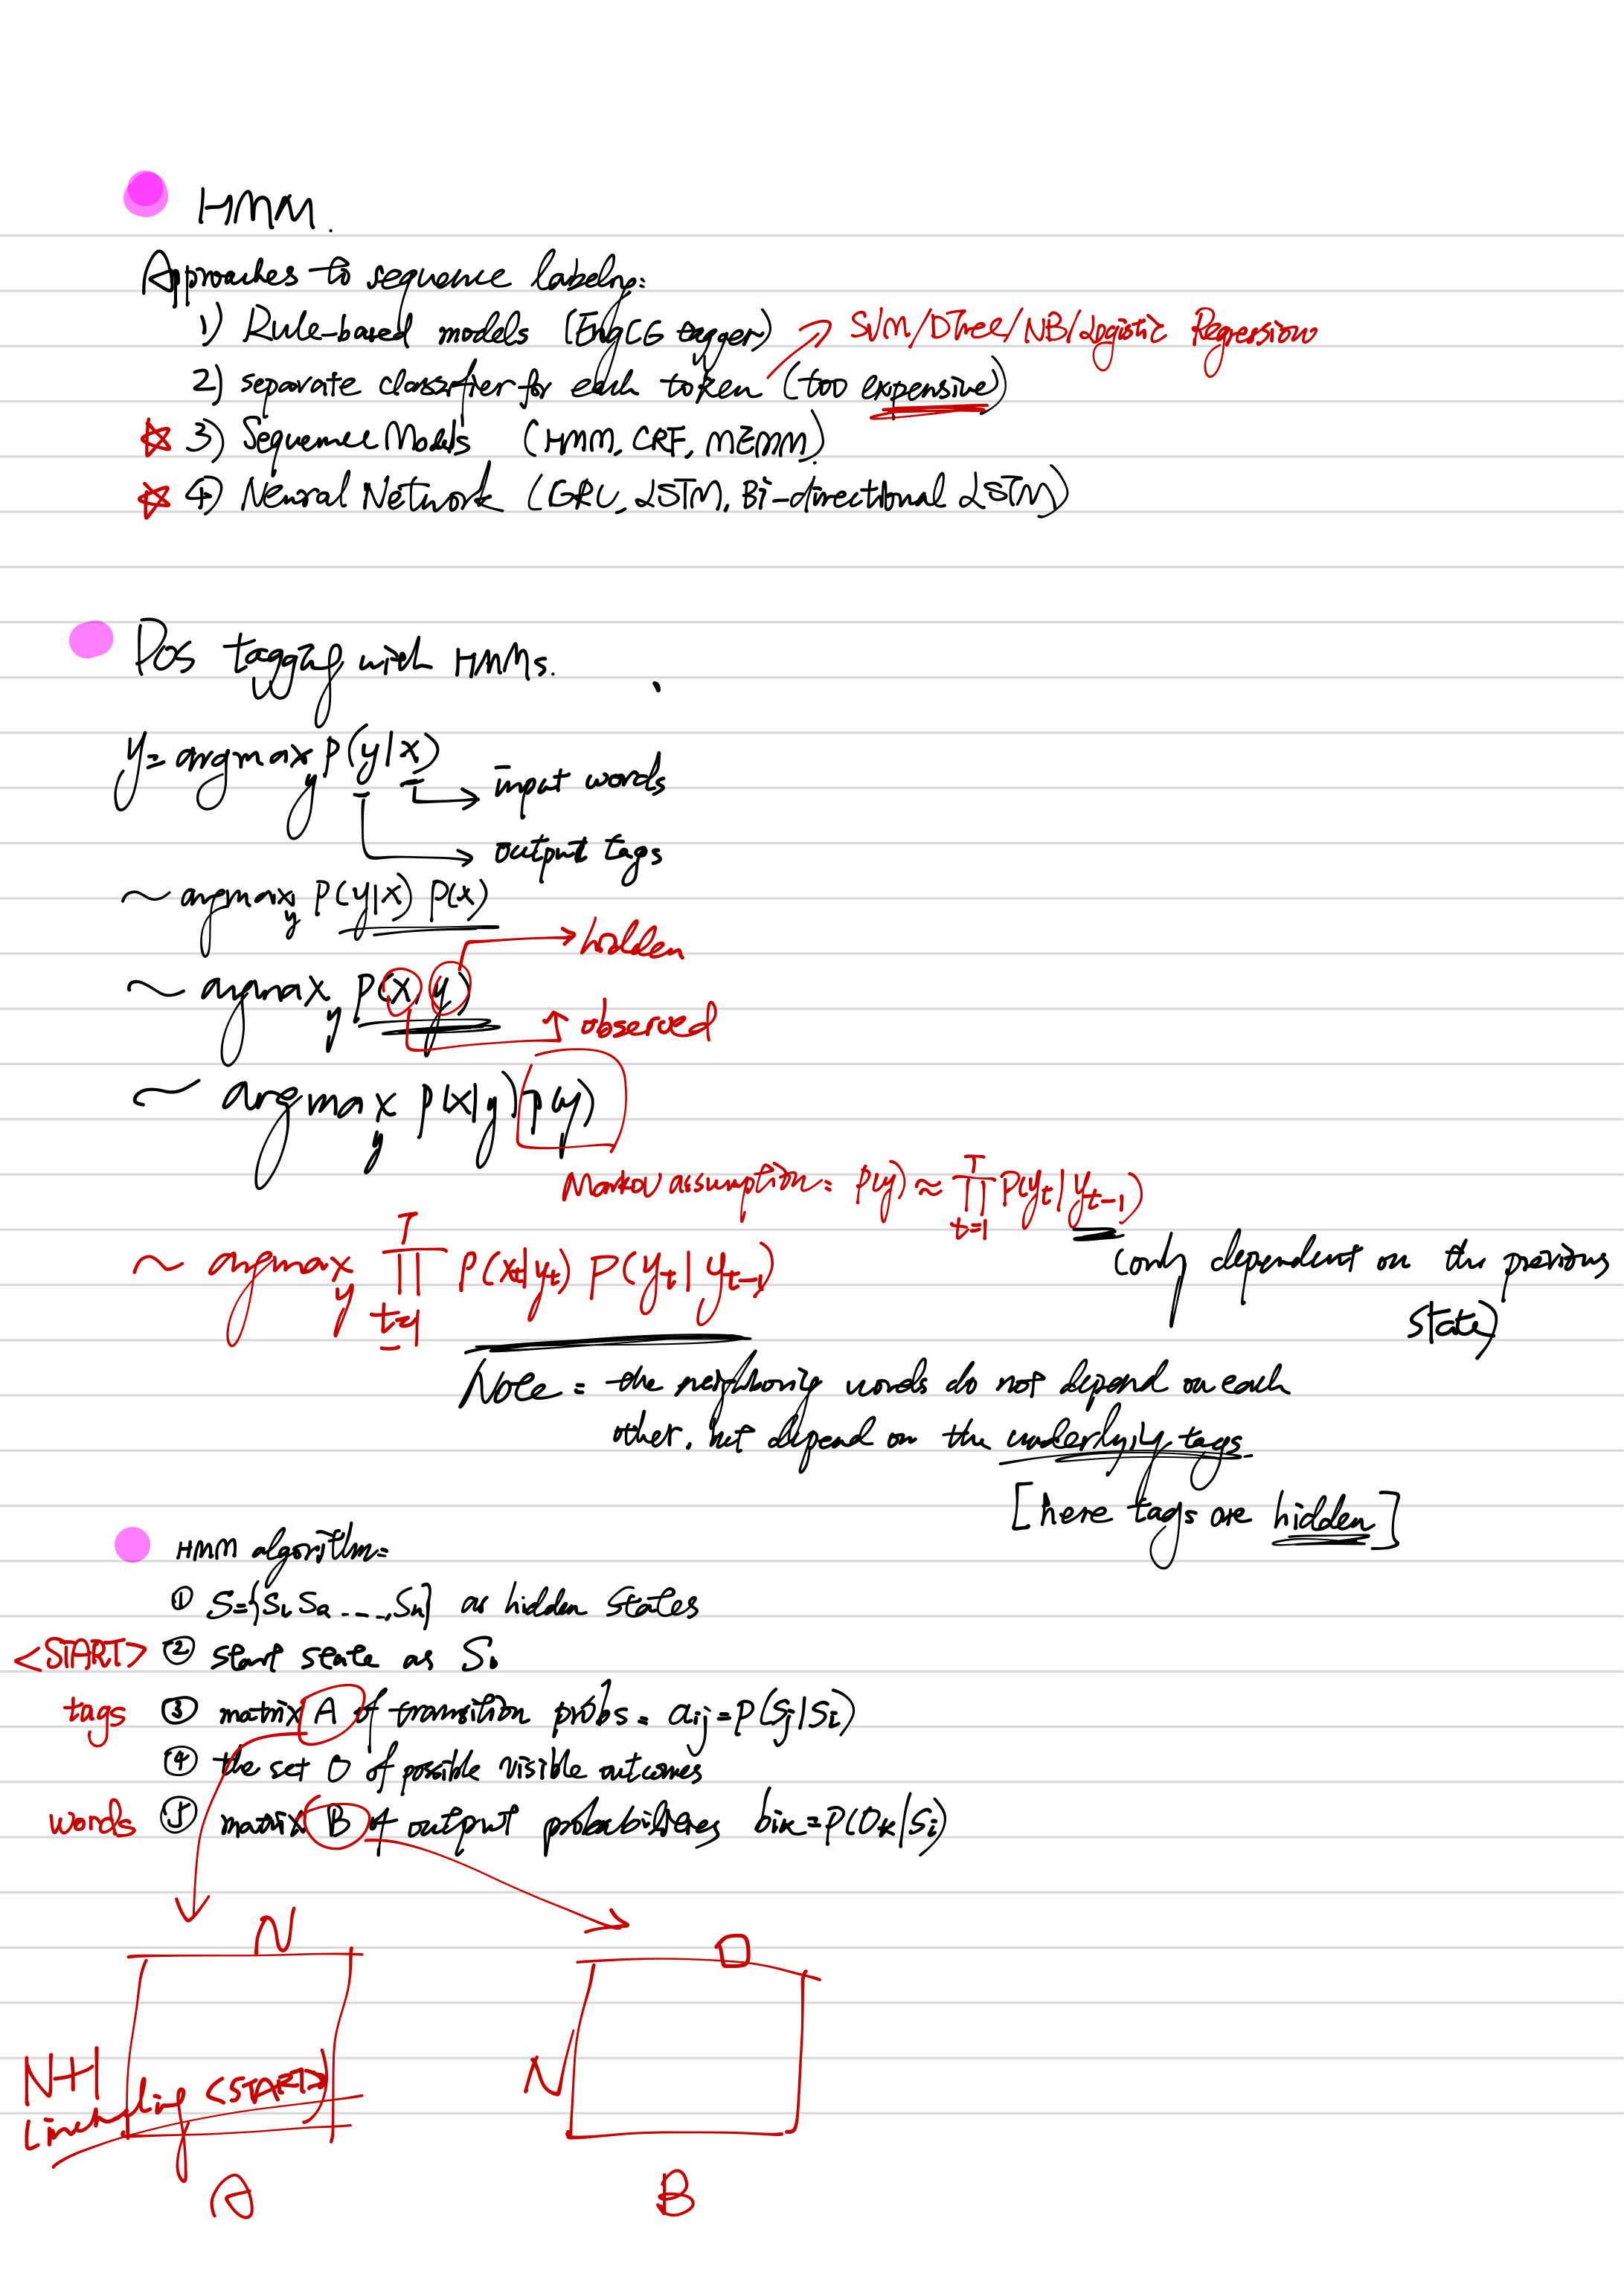 HMM.
Approaches to sequence labelng:
1) Rule-based models (EngCG tagger)
SVM/DTree/NB/Logistic Regression
2) separate classifier for each token (too expensive)
☆ 3) Sequence Models (HMM, CRF, MEMM)
☆ 4) Neural Network (GRU, LSTM, Bi-directional LSTM)
POS tagging with HMMs.
y = argmax_y P(y|x)
input words
output tags
~ argmax_y P(y|x) P(x)
hidden
~ argmax_y P(x, y)
observed
~ argmax_y P(x|y) P(y)
Markov assumption: P(y) ≈ ∏_{t=1}^{T} P(y_t | y_{t-1})
(only dependent on the previous
state)
~ argmax_y ∏_{t=1}^{T} P(x_t|y_t) P(y_t | y_{t-1})
Note: the neighboring words do not depend on each
other, but depend on the underlying tags
[here tags are hidden]
HMM algorithm:
① S={S1, S2 ----, Sn} as hidden states
<START> ② start state as S0
tags ③ matrix A of transition probs. a_ij = P(Sj|Si)
④ the set O of possible visible outcomes
words ⑤ matrix B of output probabilities b_ik = P(Ok|Si)
N
N+1
(including <START>)
A
O
N
B